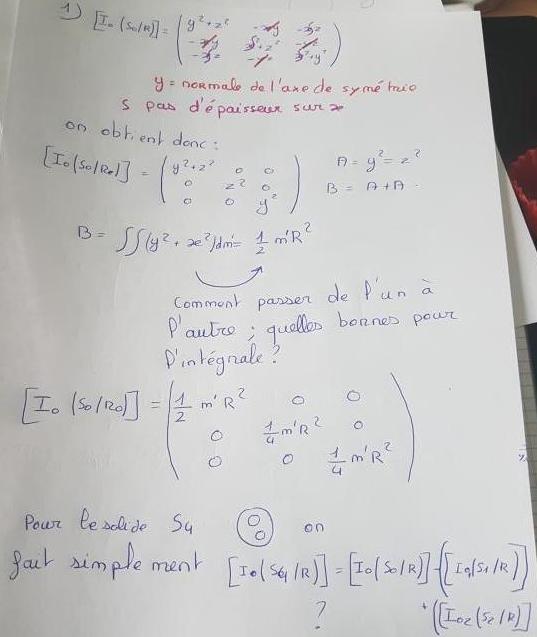 1) [I₀ (S₀/R)] = ( y²+z² -xy -xz
-xy x²+z² -yz
-xz -yz x²+y² )
y = normale de l'axe de symétrie
S pas d'épaisseur sur x
on obtient donc :
[I₀(S₀/R₀)] = ( y²+z² 0 0
0 z² 0
0 0 y² )
A = y² = z²
B = A + A .
B = ∫∫(y² + x²)dm' = 1/2 m'R²
Comment passer de l'un à
l'autre ; quelles bornes pour
l'intégrale ?
[I₀ (S₀/R₀)] = ( 1/2 m'R² 0 0
0 1/4 m'R² 0
0 0 1/4 m'R² )
Pour le solide S4 on
fait simplement [I₀(S4/R)] = [I₀(S₀/R)] - ([I₀(S₁/R)]
+ ([I₀₂(S₂/R)]
?